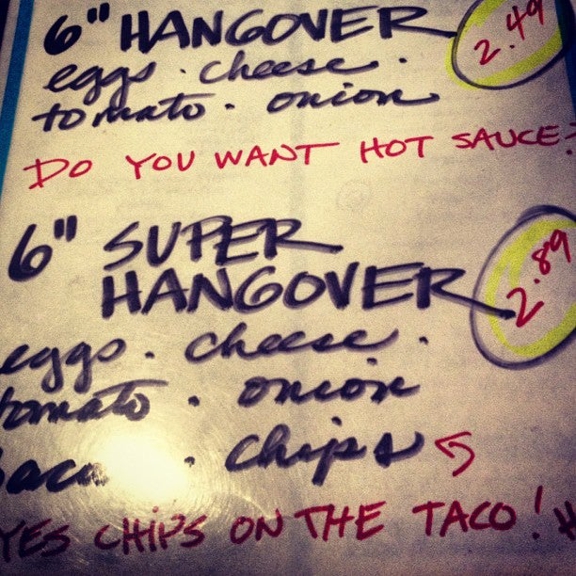 6" HANGOVER 2.49
eggs · cheese ·
tomato · onion
DO YOU WANT HOT SAUCE?
6" SUPER
HANGOVER 2.89
eggs · cheese ·
tomato · onion
· chips
YES CHIPS ON THE TACO!